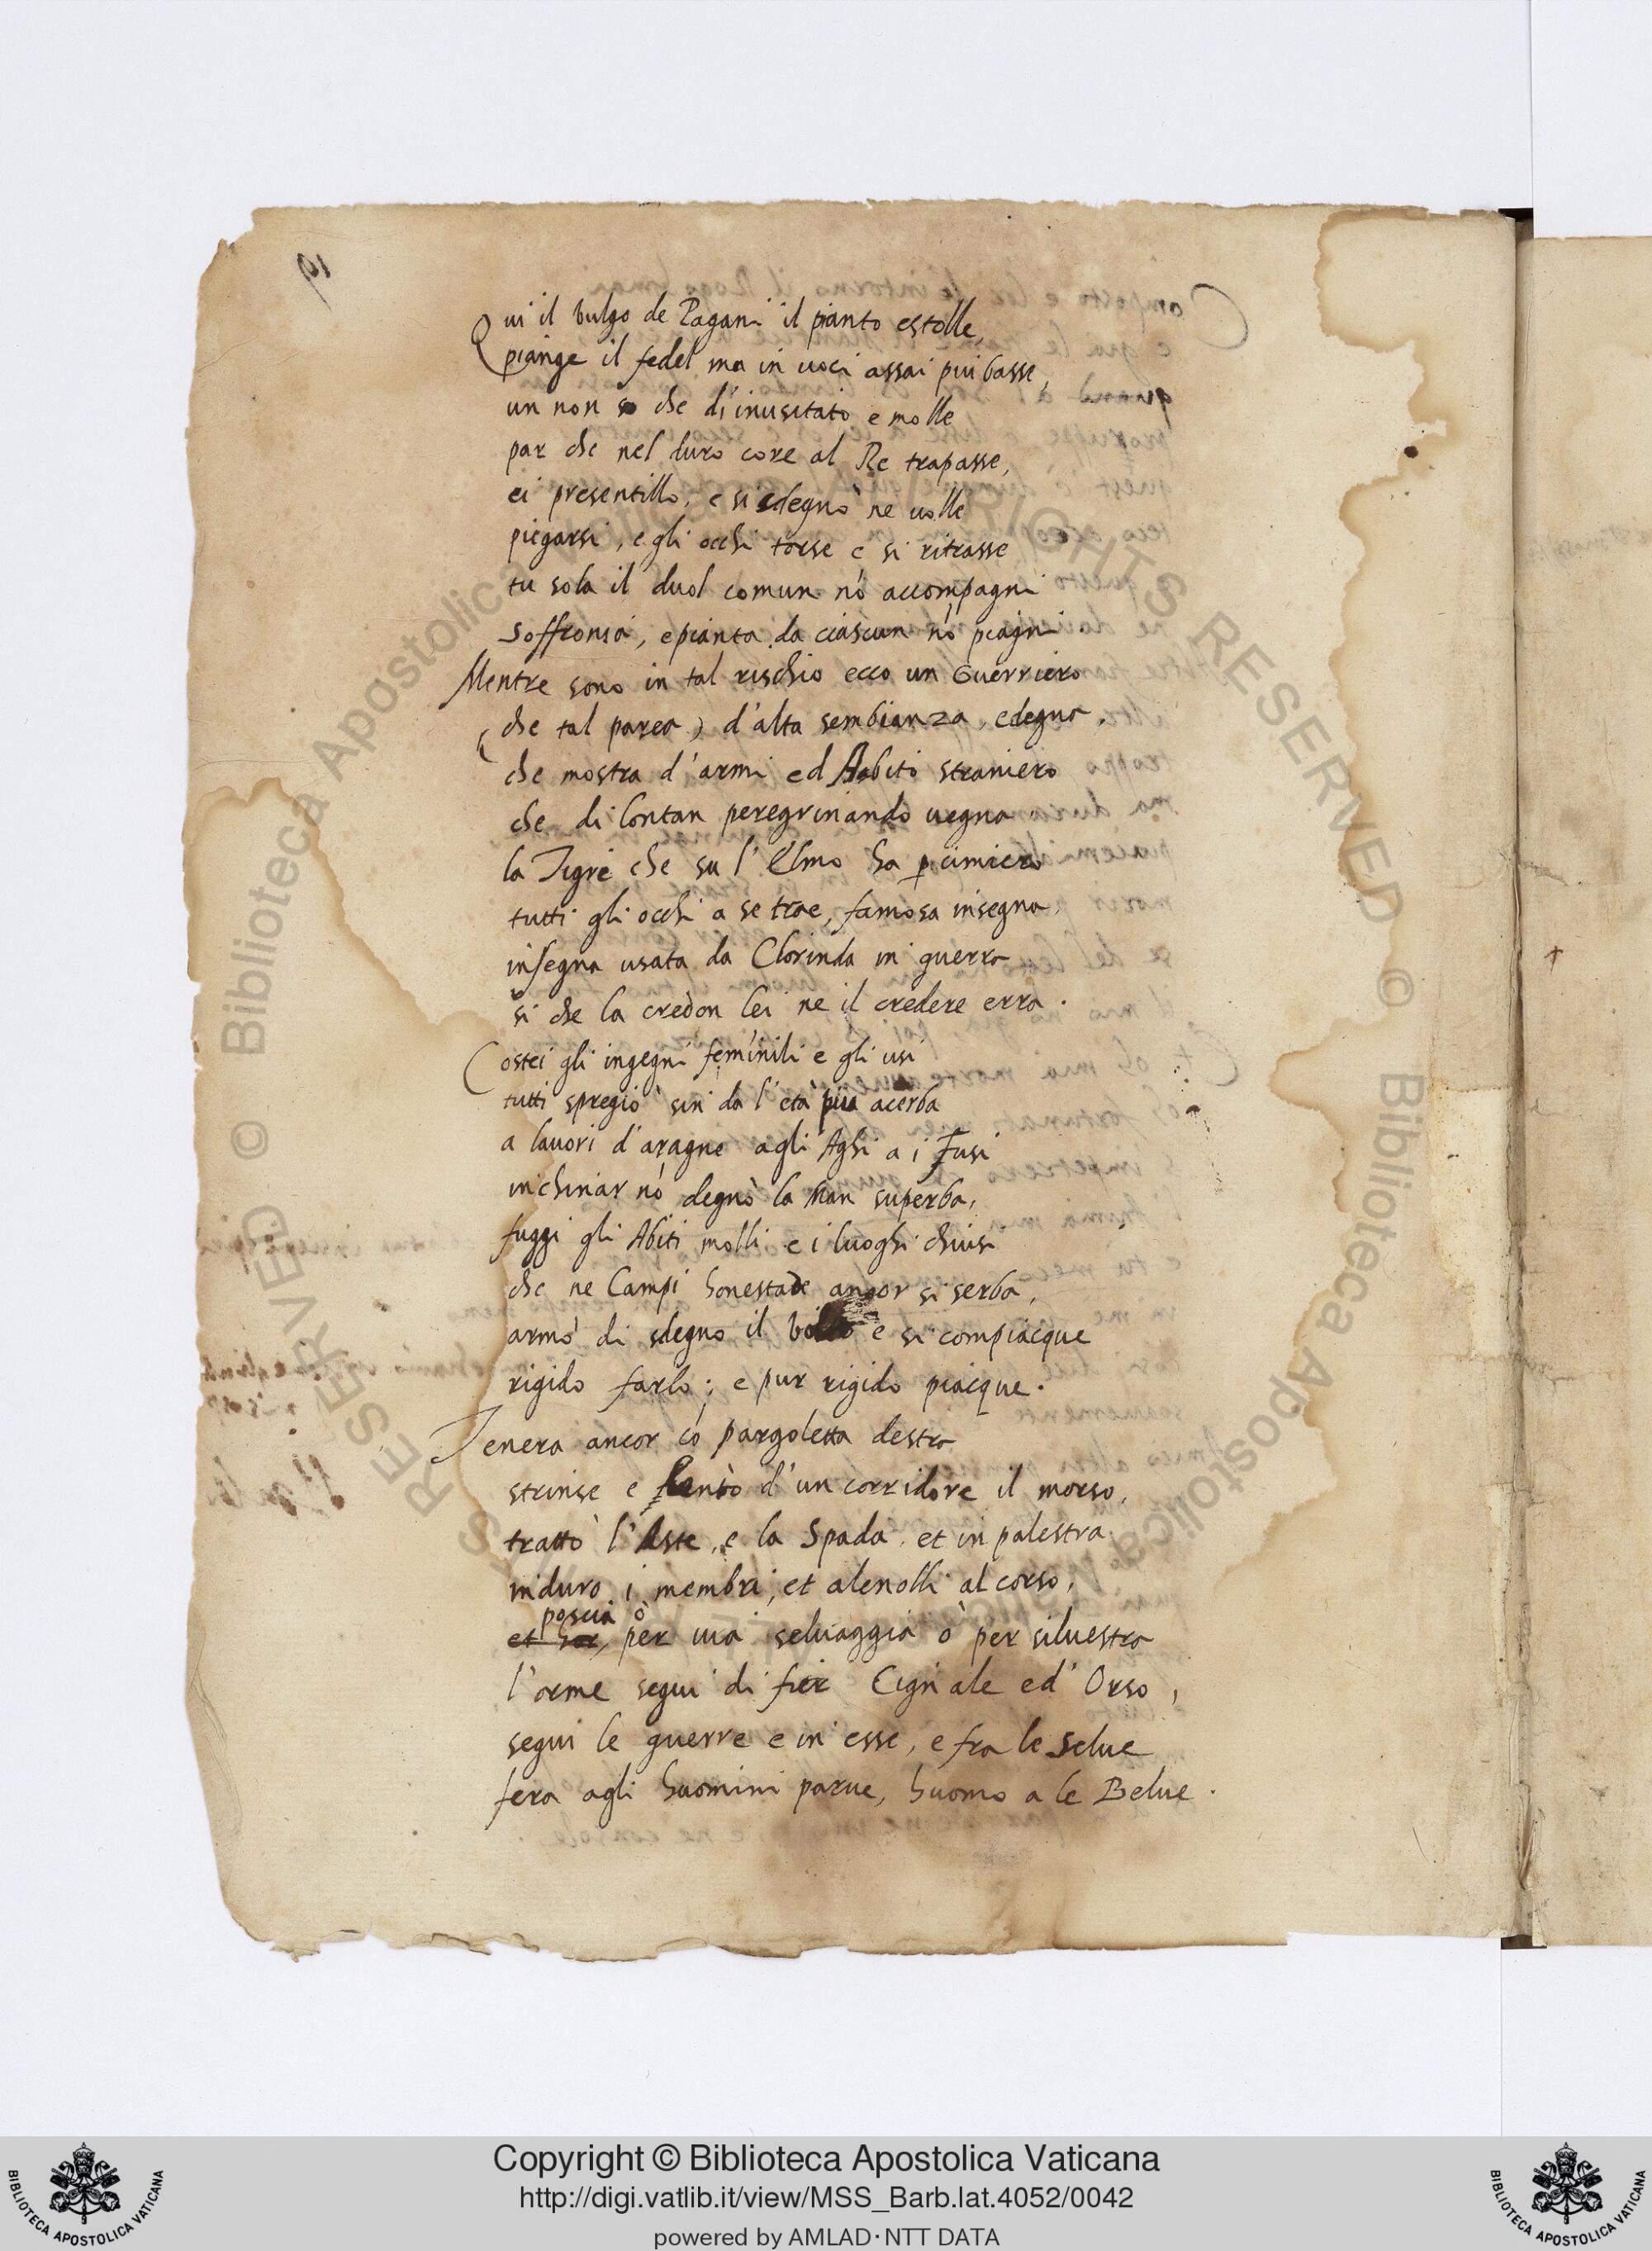 Qui il vulgo de Pagani il pianto estolle,
piange il fedel ma in uoci assai piu basse,
un non so che di inusitato e molle
par che nel duro core al Re trapasse,
ei presentillo, e si sdegnò ne uolle
piegarsi, e gli occhi torse e si ritrasse
tu sola il duol comun nō accompagni
Soffronia, e pianta da ciascun nō piagni.
Mentre sono in tal rischio ecco un Guerriero
(che tal parea) d'alta sembianza, e degna,
che mostra d'armi ed Habito straniero
che di lontan peregrinando uegna
la Tigre che su l'Elmo ha p cimiero
tutti gli occhi a se trae, famosa insegna,
insegna usata da Clorinda in guerra
si che la credon lei ne il credere erra.
Costei gli ingegni feminili e gli usi
tutti spregiò sin da l'età più acerba
a lauori d'aragne agli Aghi a i Fusi
inchinar nō degnò la Man superba,
fuggi gli Abiti molli e i luoghi chiusi
che ne Campi honestade ancor si serba,
armò di sdegno il volto e si compiacque
rigido farlo; e pur rigido piacque.
Tenera ancor cō pargoletta destra
strinse e lentò d'un corridore il morso,
trattò l'Aste, e la Spada, et in palestra
induro i membri, et alenolli al corso,
poscia ò
et hor, per uia seluaggia ò per siluestra
l'orme segui di fier Cignale ed' Orso,
segui le guerre e in esse, e fra le selue
fera agli huomini parue, huomo a le Belue.
19
Copyright © Biblioteca Apostolica Vaticana
http://digi.vatlib.it/view/MSS_Barb.lat.4052/0042
powered by AMLAD·NTT DATA
BIBLIOTECA APOSTOLICA VATICANA
BIBLIOTECA APOSTOLICA VATICANA